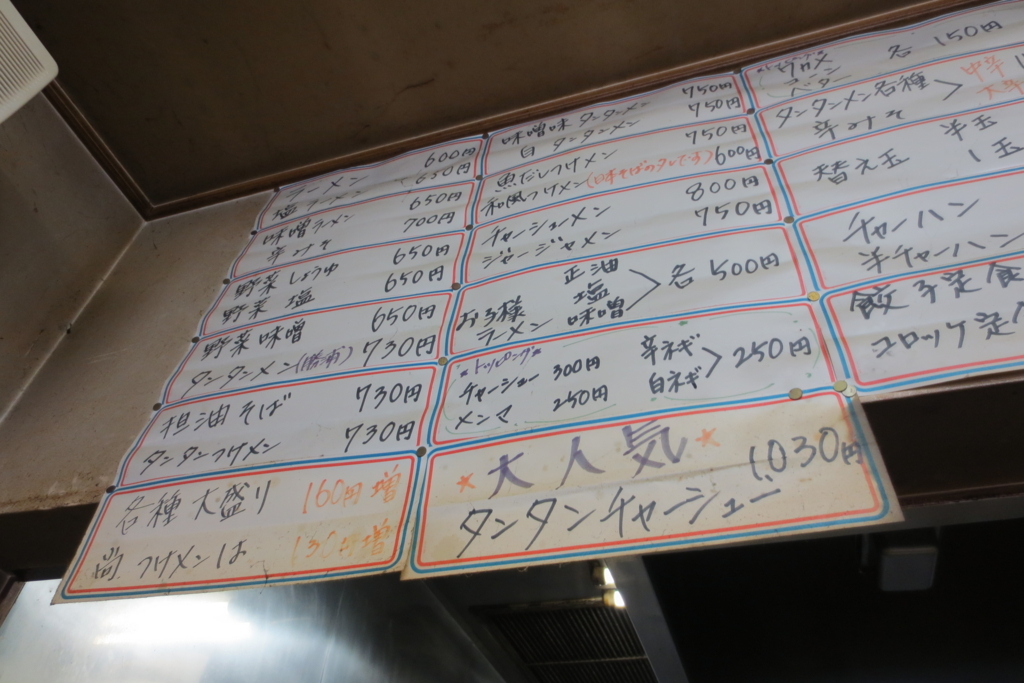 ラーメン 600円
塩ラーメン 650円
味噌ラーメン 650円
辛みそ 700円
野菜しょうゆ 650円
野菜 塩 650円
野菜味噌 650円
タンタンメン(勝浦) 730円
担油そば 730円
タンタンつけメン 730円
各種大盛り 160円増
尚 つけメンは 130円増
味噌味タンタンメン 750円
白 タンタンメン 750円
魚だしつけメン 750円
和風つけメン(日本そばのタレです) 600円
チャーシューメン 800円
ジャージャメン 750円
お子様ラーメン 正油 塩 味噌 > 各 500円
*トッピング*
チャーシュー 300円
メンマ 250円
辛ネギ 白ネギ > 250円
★大人気★
タンタンチャーシュー 1030円
ワカメ
バター
各 150円
タンタンメン各種
辛みそ
> 中辛
大辛
替え玉 半玉
1玉
チャーハン
半チャーハン
餃子定食
コロッケ定